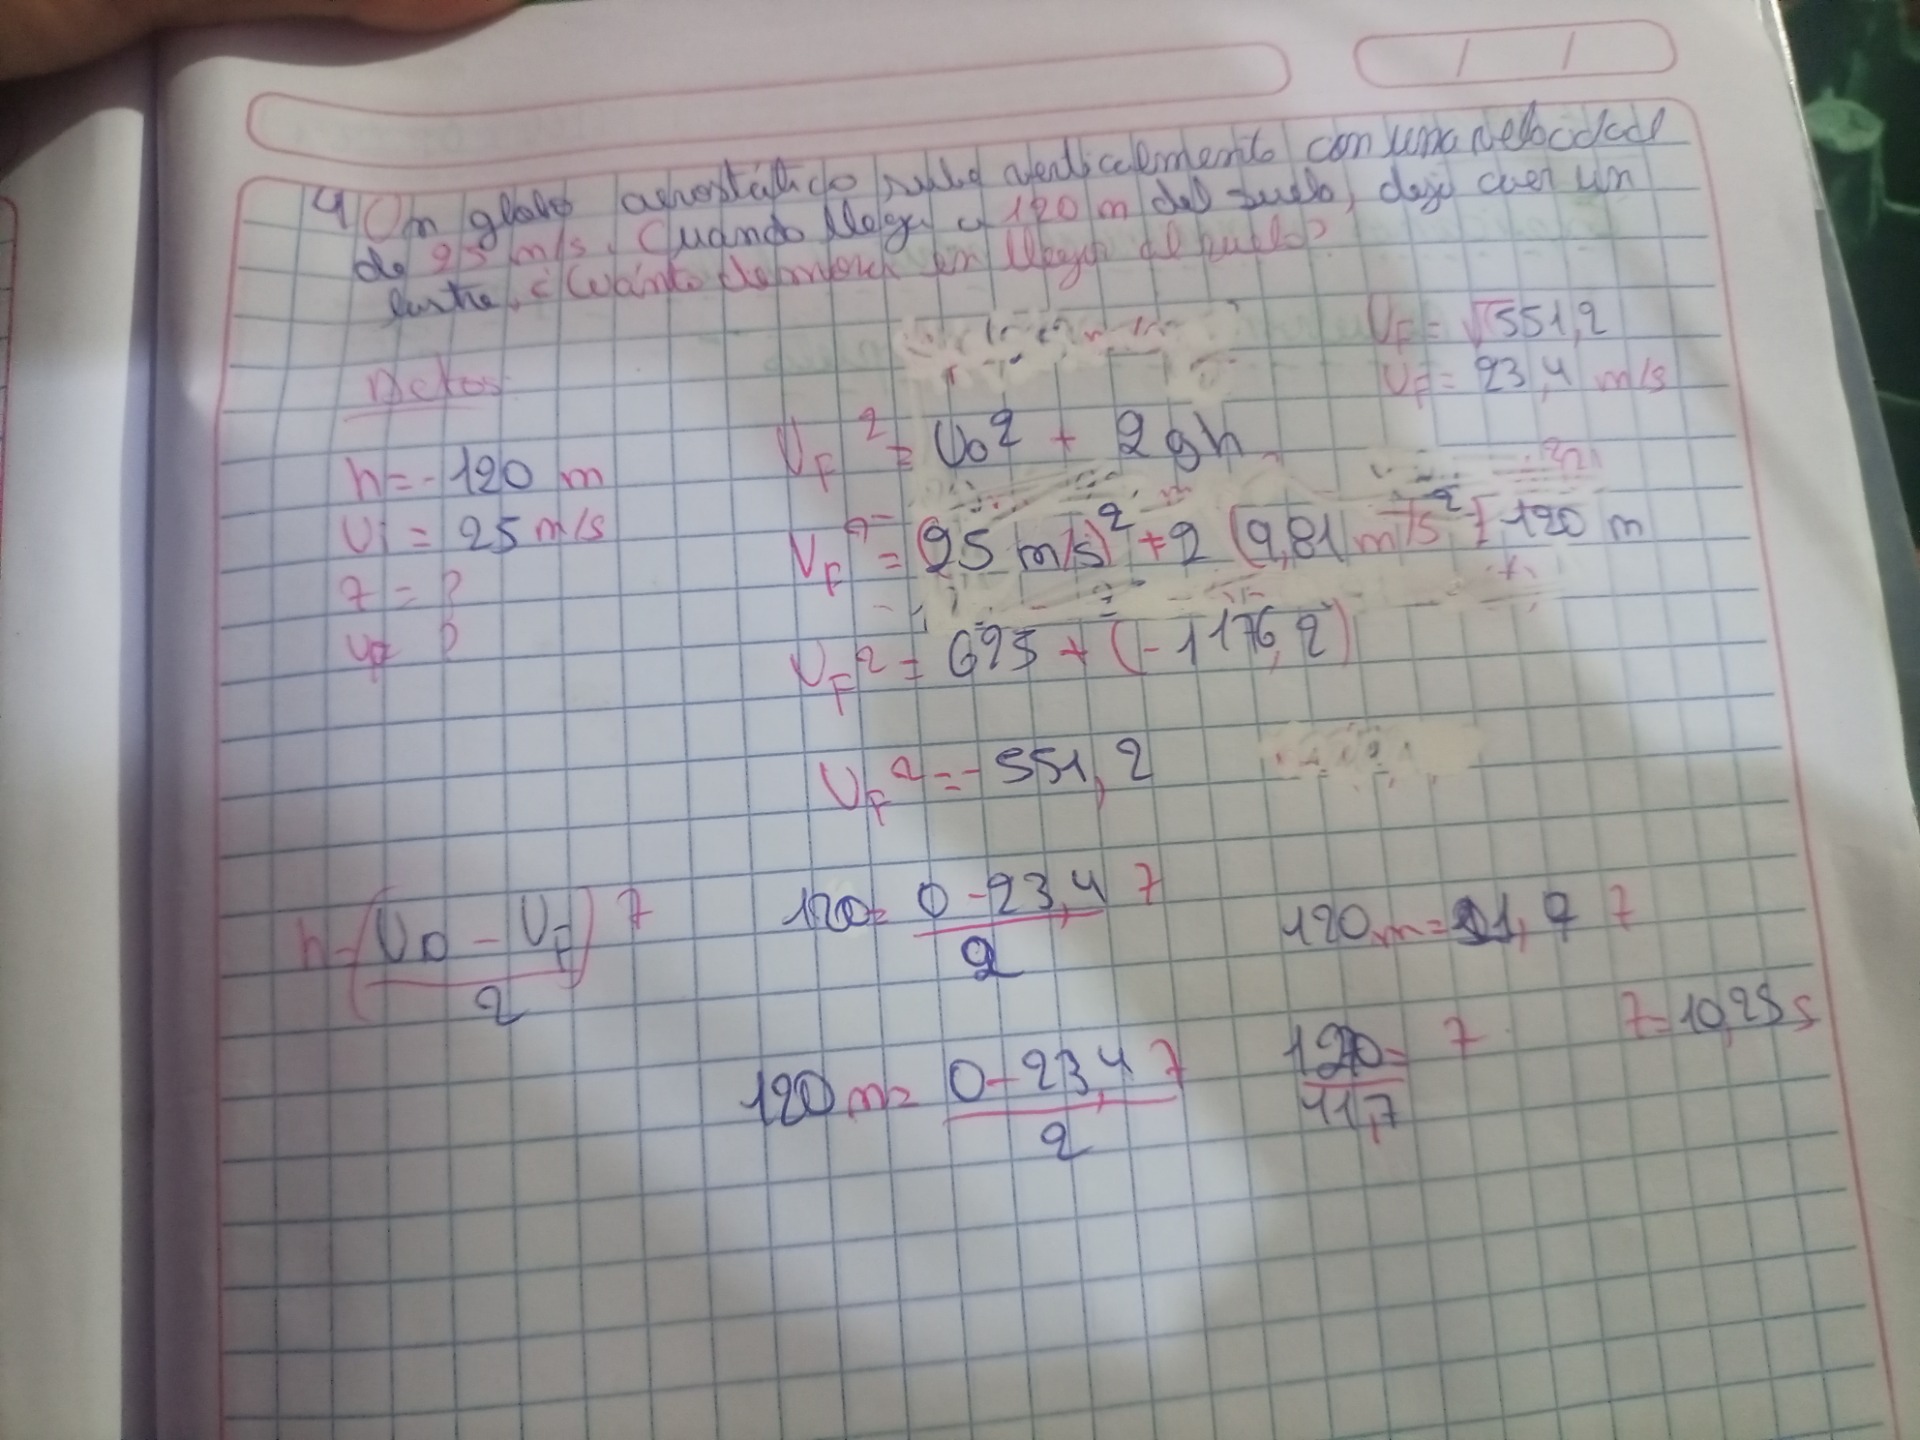 4) Un globo aerostático sube verticalmente con una velocidad
de 25 m/s. Cuando llega a 120 m del suelo, deja caer un
lastre. ¿Cuánto demora en llegar al suelo?
Datos
h = - 120 m
Vi = 25 m/s
T = ?
VF ?
VF² = Vo² + 2gh
VF² = (25 m/s)² + 2 (9,81 m/s²) - 120 m
VF² = 625 + (-1176,2)
VF² = - 551,2
VF = √551,2
VF = 23,4 m/s
h = (VO - VF) T
2
120 = 0 - 23,4 T
2
120 m = 0 - 23,4 T
2
120 m = 11,7 T
120 = T
11,7
T = 10,25 s